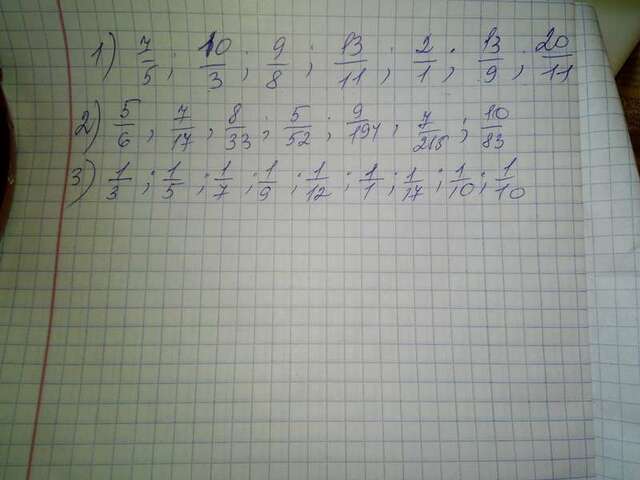 1) 7/5 ; 10/3 ; 9/8 ; 13/11 ; 2/1 ; 13/9 ; 20/11
2) 5/6 ; 7/17 ; 8/33 ; 5/52 ; 9/194 ; 7/215 ; 10/83
3) 1/3 ; 1/5 ; 1/7 ; 1/9 ; 1/12 ; 1/1 ; 1/17 ; 1/10 ; 1/10